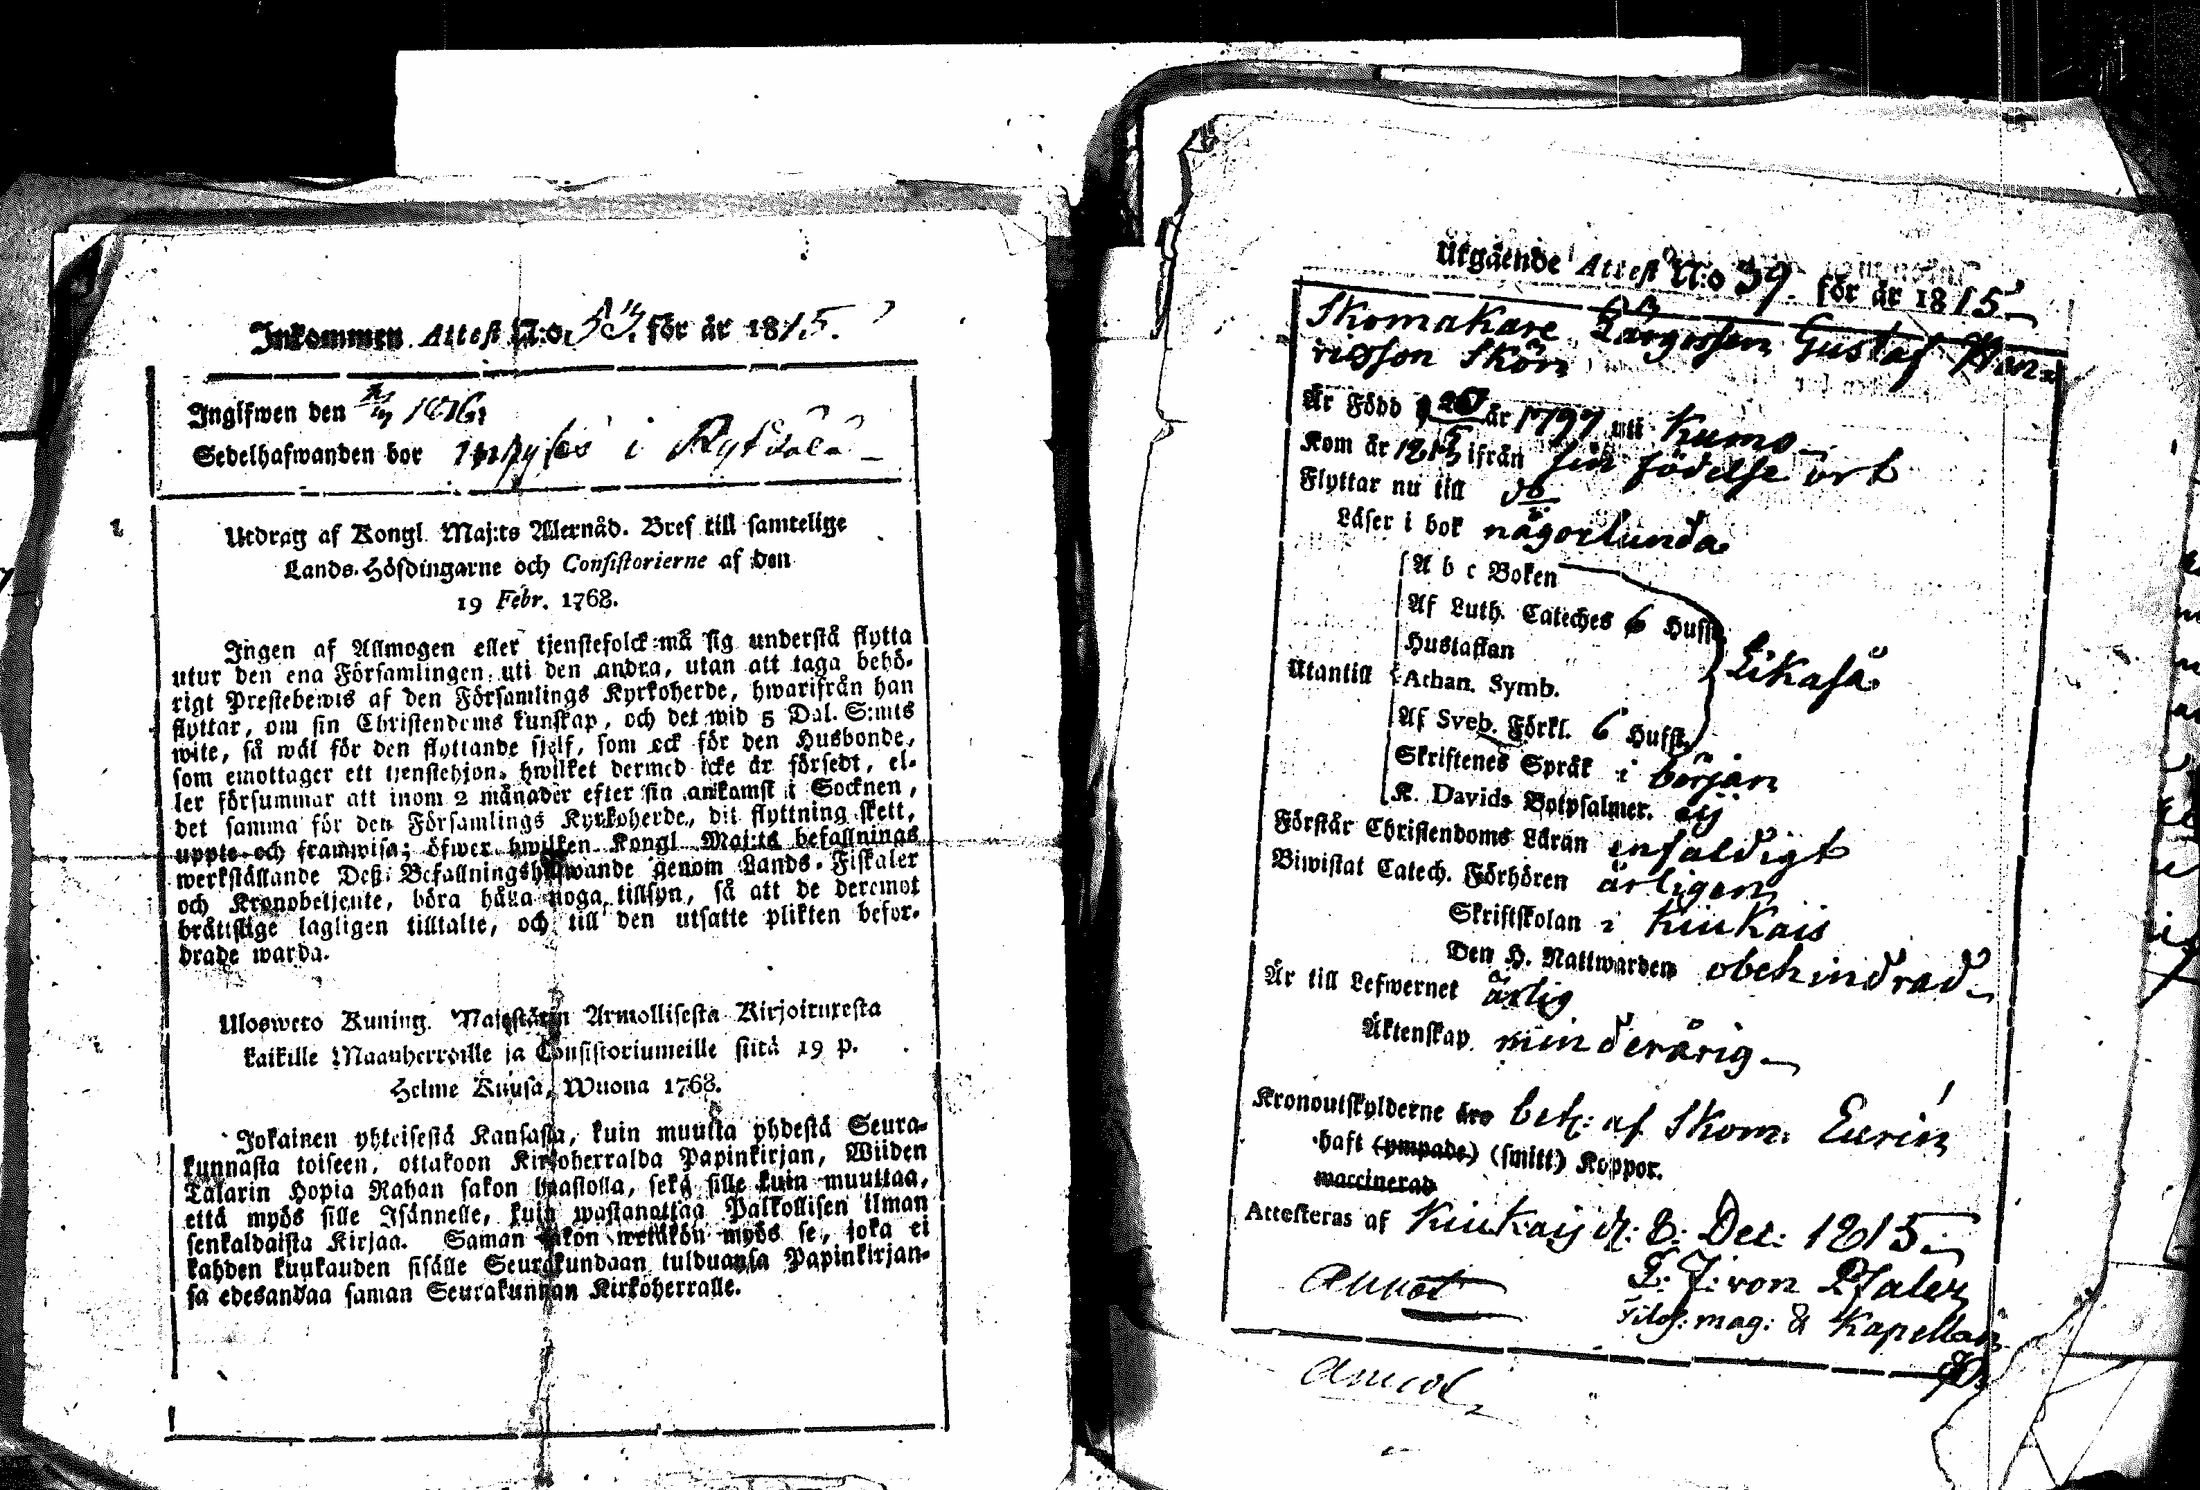 Inkommen Attest N:o 53. för år 1815.
Ingifwen den 1816
Sedelhafwanden bor i
Utdrag af Kongl. Maj:ts Allernåd. Bref till samtelige
Lands-Höfdingarne och Consistorierne af den
19 Febr. 1768.
Ingen af Allmogen eller tjenstefolck må sig understå flytta
utur den ena Församlingen uti den andra, utan att taga behö-
rigt Prestebewis af den Församlings Kyrkoherde, hwarifrån han
flyttar, om sin Christendoms kunskap, och det wid 5 Dal. S:mts
wite, så wäl för den flyttande sjelf, som ock för den Husbonde,
som emottager ett tjenstehjon, hwilket dermed icke är försedt, el-
ler försummar att inom 2 månader efter sin ankomst i Socknen,
det samma för den Församlings Kyrkoherde, dit flyttning skett,
uppte och framwisa; öfwer hwilken Kongl. Maj:ts befallnings
werkställande Deß Befallningshafwande genom Lands-Fiskaler
och Kronobetjente, böra hålla noga tillsyn, så att de deremot
bråttslige lagligen tilltalte, och till den utsatte plikten befor-
drade warda.
Uloswето Kuning. Majestätin Armollisesta Kirjoituxesta
kaikille Maanherroille ja Consistoriumeille siitä 19 p.
Helme Kuusa, Wuona 1768.
Jokainen yhteisestä Kansasta, kuin muutta yhdestä Seura-
kunnasta toiseen, ottakoon Kirkoherralda Papinkirjan, Wiiden
Talarin Hopia Rahan sakon haastolla, sekä sille kuin muuttaa,
että myös sille Isännelle, kuin wastanottaa Palkollisen ilman
senkaldaista Kirjaa. Saman sakon wetäkön myös se, joka ei
kahden kuukauden sisälle Seurakundaan tulduansa Papinkirjan-
sa edesandaa saman Seurakunnan Kirkoherralle.
Utgående Attest N:o 39. för år 1815
Skomakare Lärgossen Gustaf Hen-
ricsson Skön
Är Född d 20 år 1797 uti Kumo
Kom år 1815 ifrån sin födelse ort
Flyttar nu till do
Läser i bok någorlunda
A b c Boken
Af Luth. Cateches 6 Hufst.
Hustaflan
Utantill Athan. Symb. Likaså
Af Sveb. Förkl. 6 Hufst.
Skriftenes Språk i början
K. Davids Botpsalmer. ej
Förstår Christendoms Läran enfaldigt
Biwistat Catech. Förhören årligen
Skriftskolan i Kiukais
Den H. Nattwarden obehindrad
Är till Lefwernet ärlig
Äktenskap minderårig
Kronoutskylderne äro bet: af Skom: Eurén
haft (ympade) (smitt) Koppor.
waccinerad
Attesteras af Kiukais d: 8: Dec: 1815
L: J: von Pfaler
Filos: mag: & Kapellan